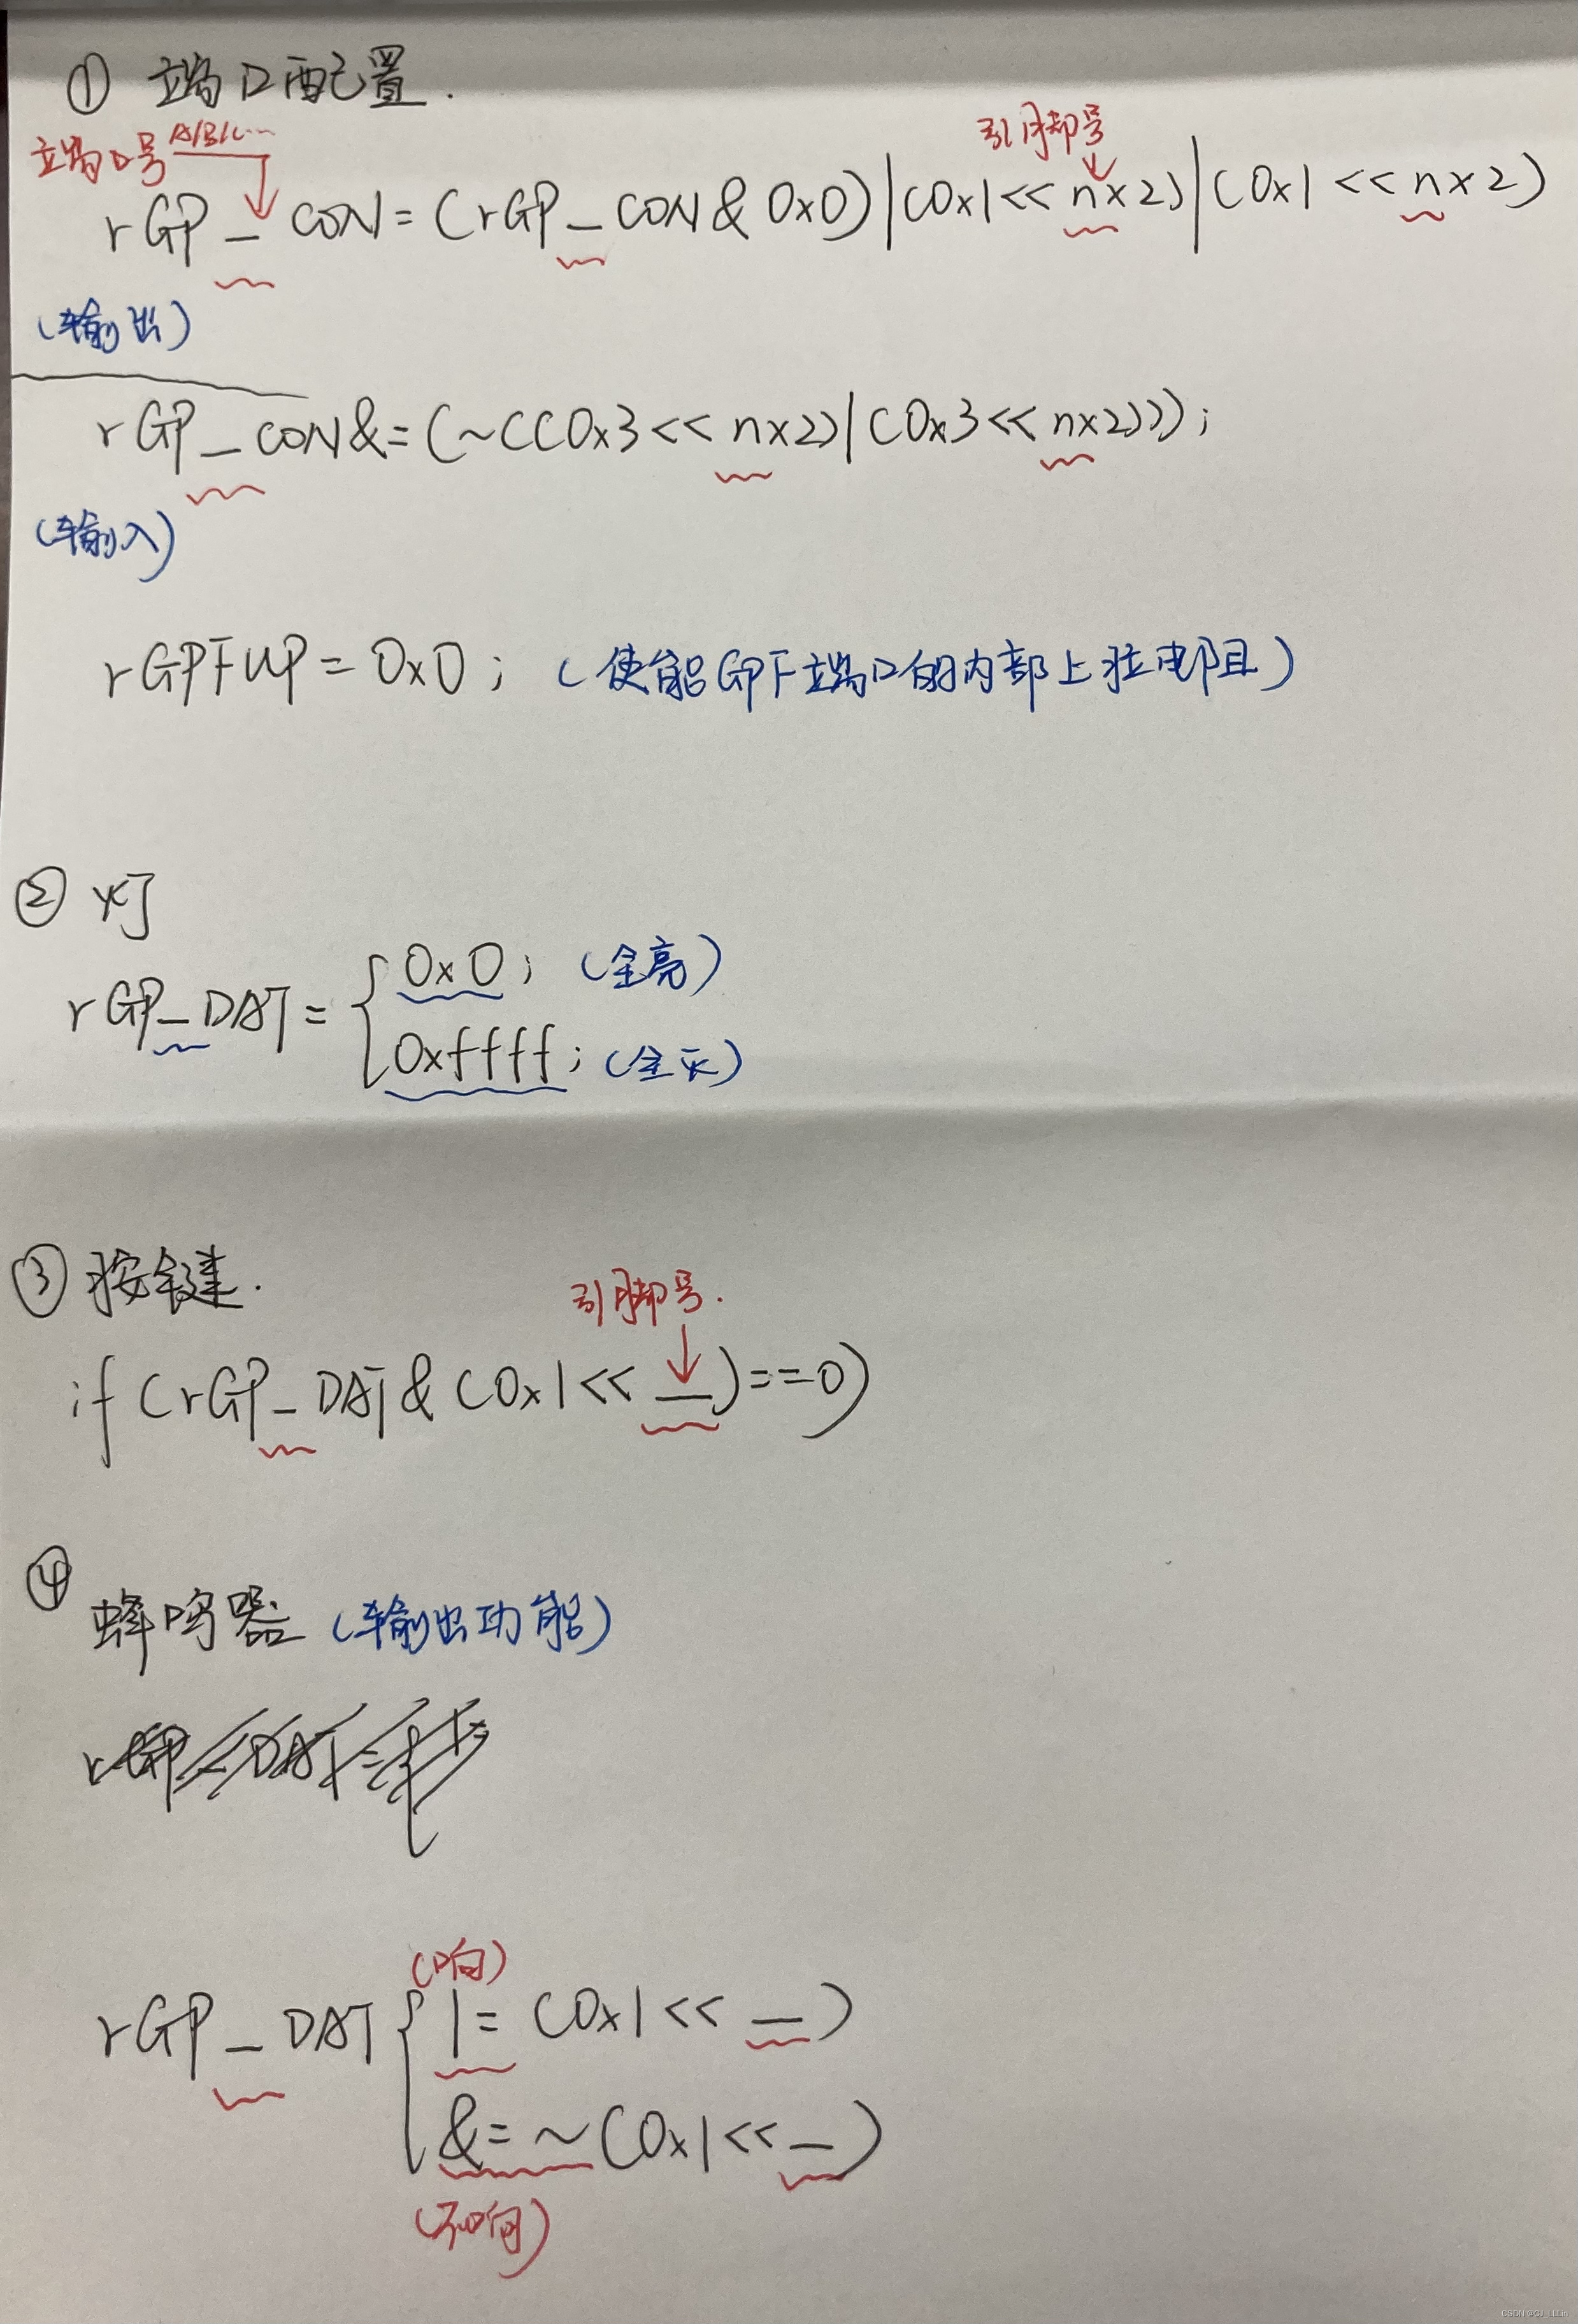 ① 端口配置.
端口号 A/B/C…
引脚号
rGP_CON=(rGP_CON&0x0)|(0x1<<n×2)|(0x1<<n×2)
(输出)
rGP_CON&=(~((0x3<<n×2)|(0x3<<n×2)));
(输入)
rGPFUP=0x0; (使能GPF端口的内部上拉电阻)
② 灯
rGP_DAT={0x0; (全亮)
0xffff; (全灭)
③ 按键.
引脚号.
if(rGP_DAT&(0x1<<_)==0)
④ 蜂鸣器 (输出功能)
(响)
rGP_DAT{|=(0x1<<_)
&=~(0x1<<_)
(不响)
CSDN @CJ_LLLin